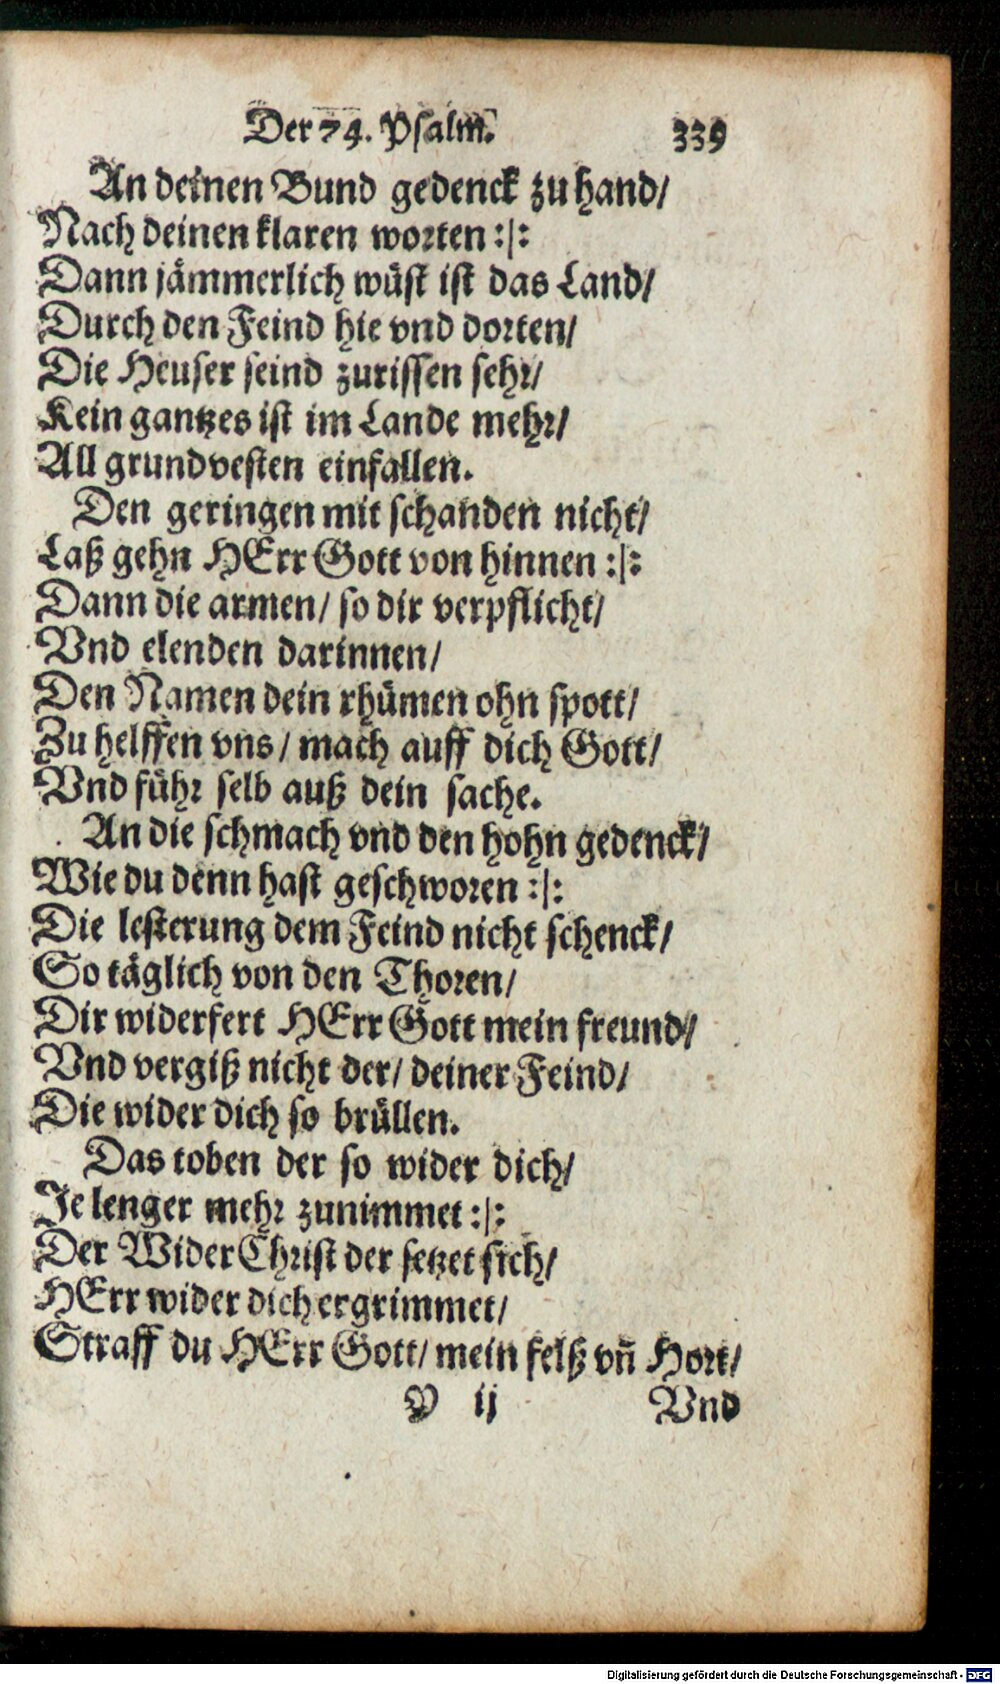 Der 74. Psalm. 339
An deinen Bund gedenck zu hand/
Nach deinen klaren worten :|:
Dann jämmerlich wüst ist das Land/
Durch den Feind hie vnd dorten/
Die Heuser seind zurissen sehr/
Kein gantzes ist im Lande mehr/
All grundvesten einfallen.
Den geringen mit schanden nicht/
Laß gehn HErr Gott von hinnen :|:
Dann die armen/ so dir verpflicht/
Vnd elenden darinnen/
Den Namen dein rhümen ohn spott/
Zu helffen vns/ mach auff dich Gott/
Vnd führ selb auß dein sache.
An die schmach vnd den hohn gedenck/
Wie du denn hast geschworen :|:
Die lesterung dem Feind nicht schenck/
So täglich von den Thoren/
Dir widerfert HErr Gott mein freund/
Vnd vergiß nicht der/ deiner Feind/
Die wider dich so brüllen.
Das toben der so wider dich/
Je lenger mehr zunimmet :|:
Der WiderChrist der setzet sich/
HErr wider dich ergrimmet/
Straff du HErr Gott/ mein felß vñ Hort/
Y ij Vnd
Digitalisierung gefördert durch die Deutsche Forschungsgemeinschaft - DFG